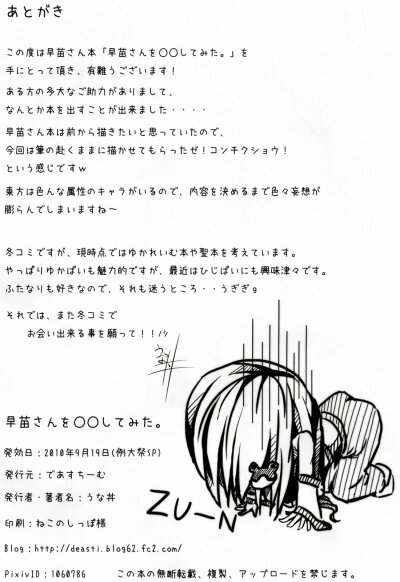 あとがき
この度は早苗さん本「早苗さんを〇〇してみた。」を
手にとって頂き、有難うございます！
ある方の多大なご助力がありまして、
なんとか本を出すことが出来ました・・・・
早苗さん本は前から描きたいと思っていたので、
今回は筆の赴くままに描かせてもらったぜ！コンチクショウ！
という感じですｗ
東方は色んな属性のキャラがいるので、内容を決めるまで色々妄想が
膨らんでしまいますね～
冬コミですが、現時点ではゆかれいむ本や聖本を考えています。
やっぱりゆかぱいも魅力的ですが、最近はひじぱいにも興味津々です。
ふたなりも好きなので、それも迷うところ・・うぎぎｇ
それでは、また冬コミで
お会い出来る事を願って！！ﾉｼ
早苗さんを〇〇してみた。
発効日：2010年9月19日(例大祭SP)
発行元：であすちーむ
発行者・著者名：うな丼
印刷：ねこのしっぽ様
Blog：http://deasti.blog62.fc2.com/
PixivID：1060786
この本の無断転載、複製、アップロードを禁じます。
ZU-N